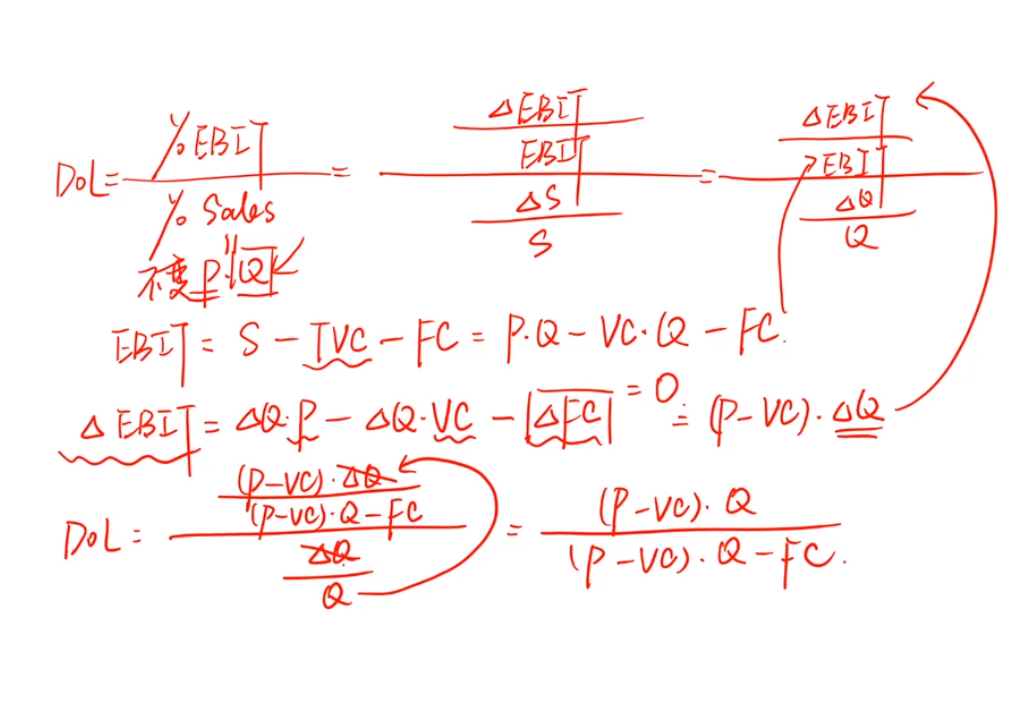 DOL = %EBIT / %Sales = (ΔEBIT / EBIT) / (ΔS / S) = (ΔEBIT / EBIT) / (ΔQ / Q)
不变 P·Q
EBIT = S - TVC - FC = P·Q - VC·Q - FC.
ΔEBIT = ΔQ·P - ΔQ·VC - ΔFC = 0 = (P-VC)·ΔQ
DOL = ((P-VC)·ΔQ / (P-VC)·Q-FC) / (ΔQ / Q) = (P-VC)·Q / (P-VC)·Q-FC.